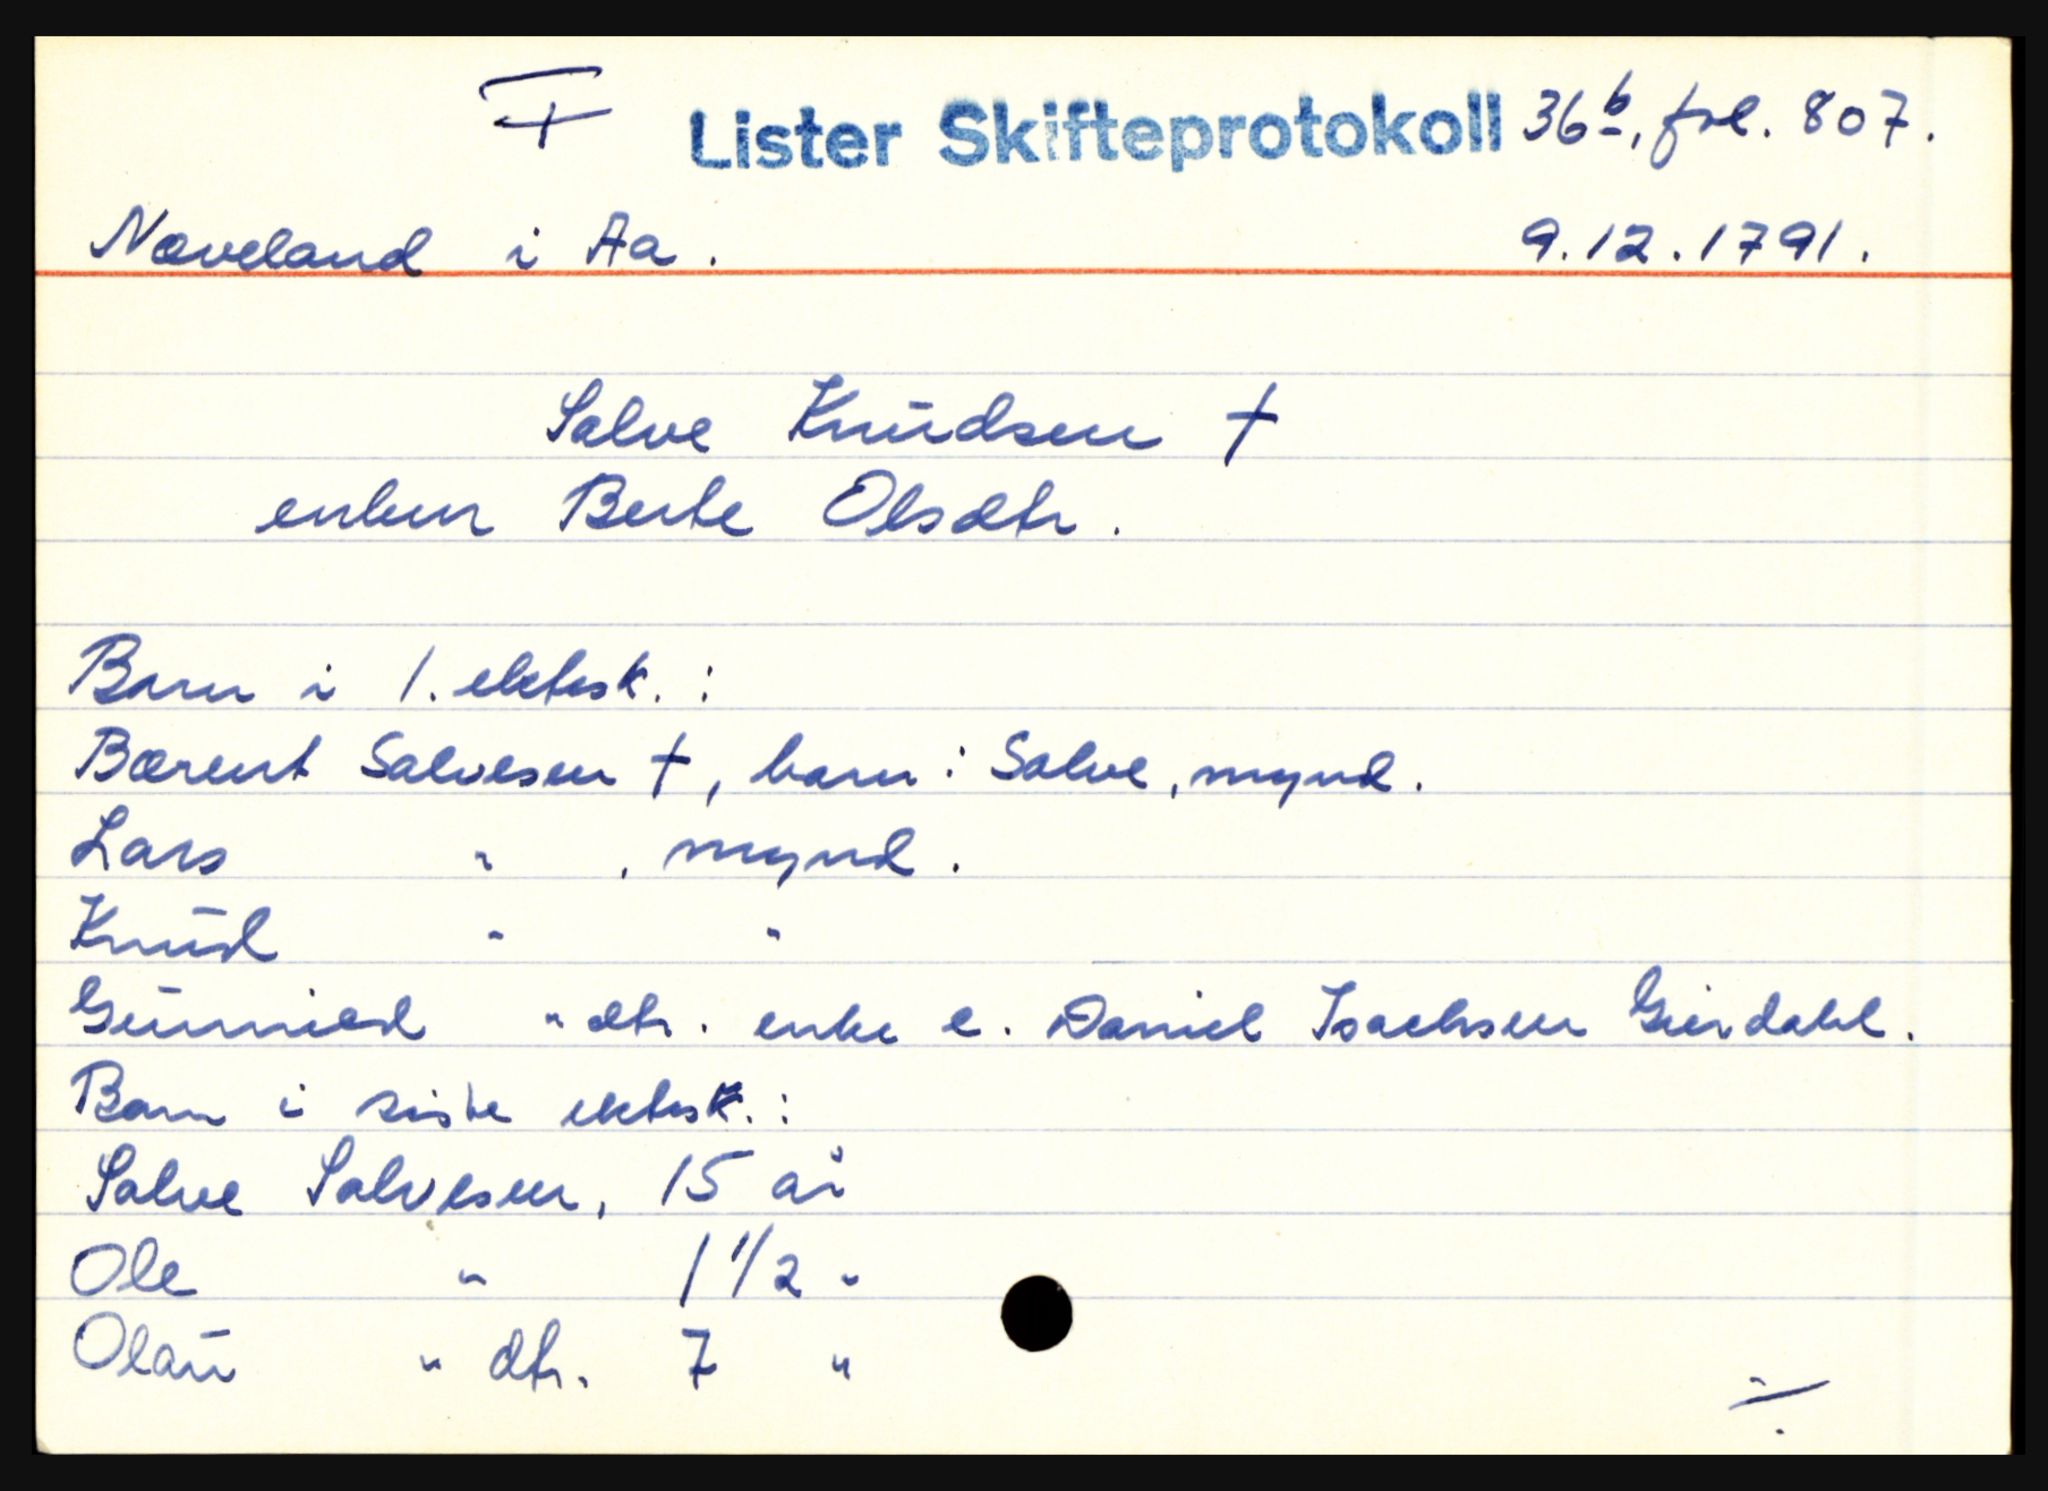 F Lister Skifteprotokoll 36b, fol. 807.
Næveland i Aa. 9.12.1791.
Salve Knudsen †
enken Berte Olsdtr.
Barn i 1. ektesk. :
Bærent Salvesen †, barn : Salve, mynd.
Lars " , mynd.
Knud " "
Gunnild " dtr. enke e. Daniel Isachsen Geirdahl.
Barn i siste ektesk. :
Salve Salvesen, 15 år
Ole " 1 1/2 "
Olau " dtr. 7 "